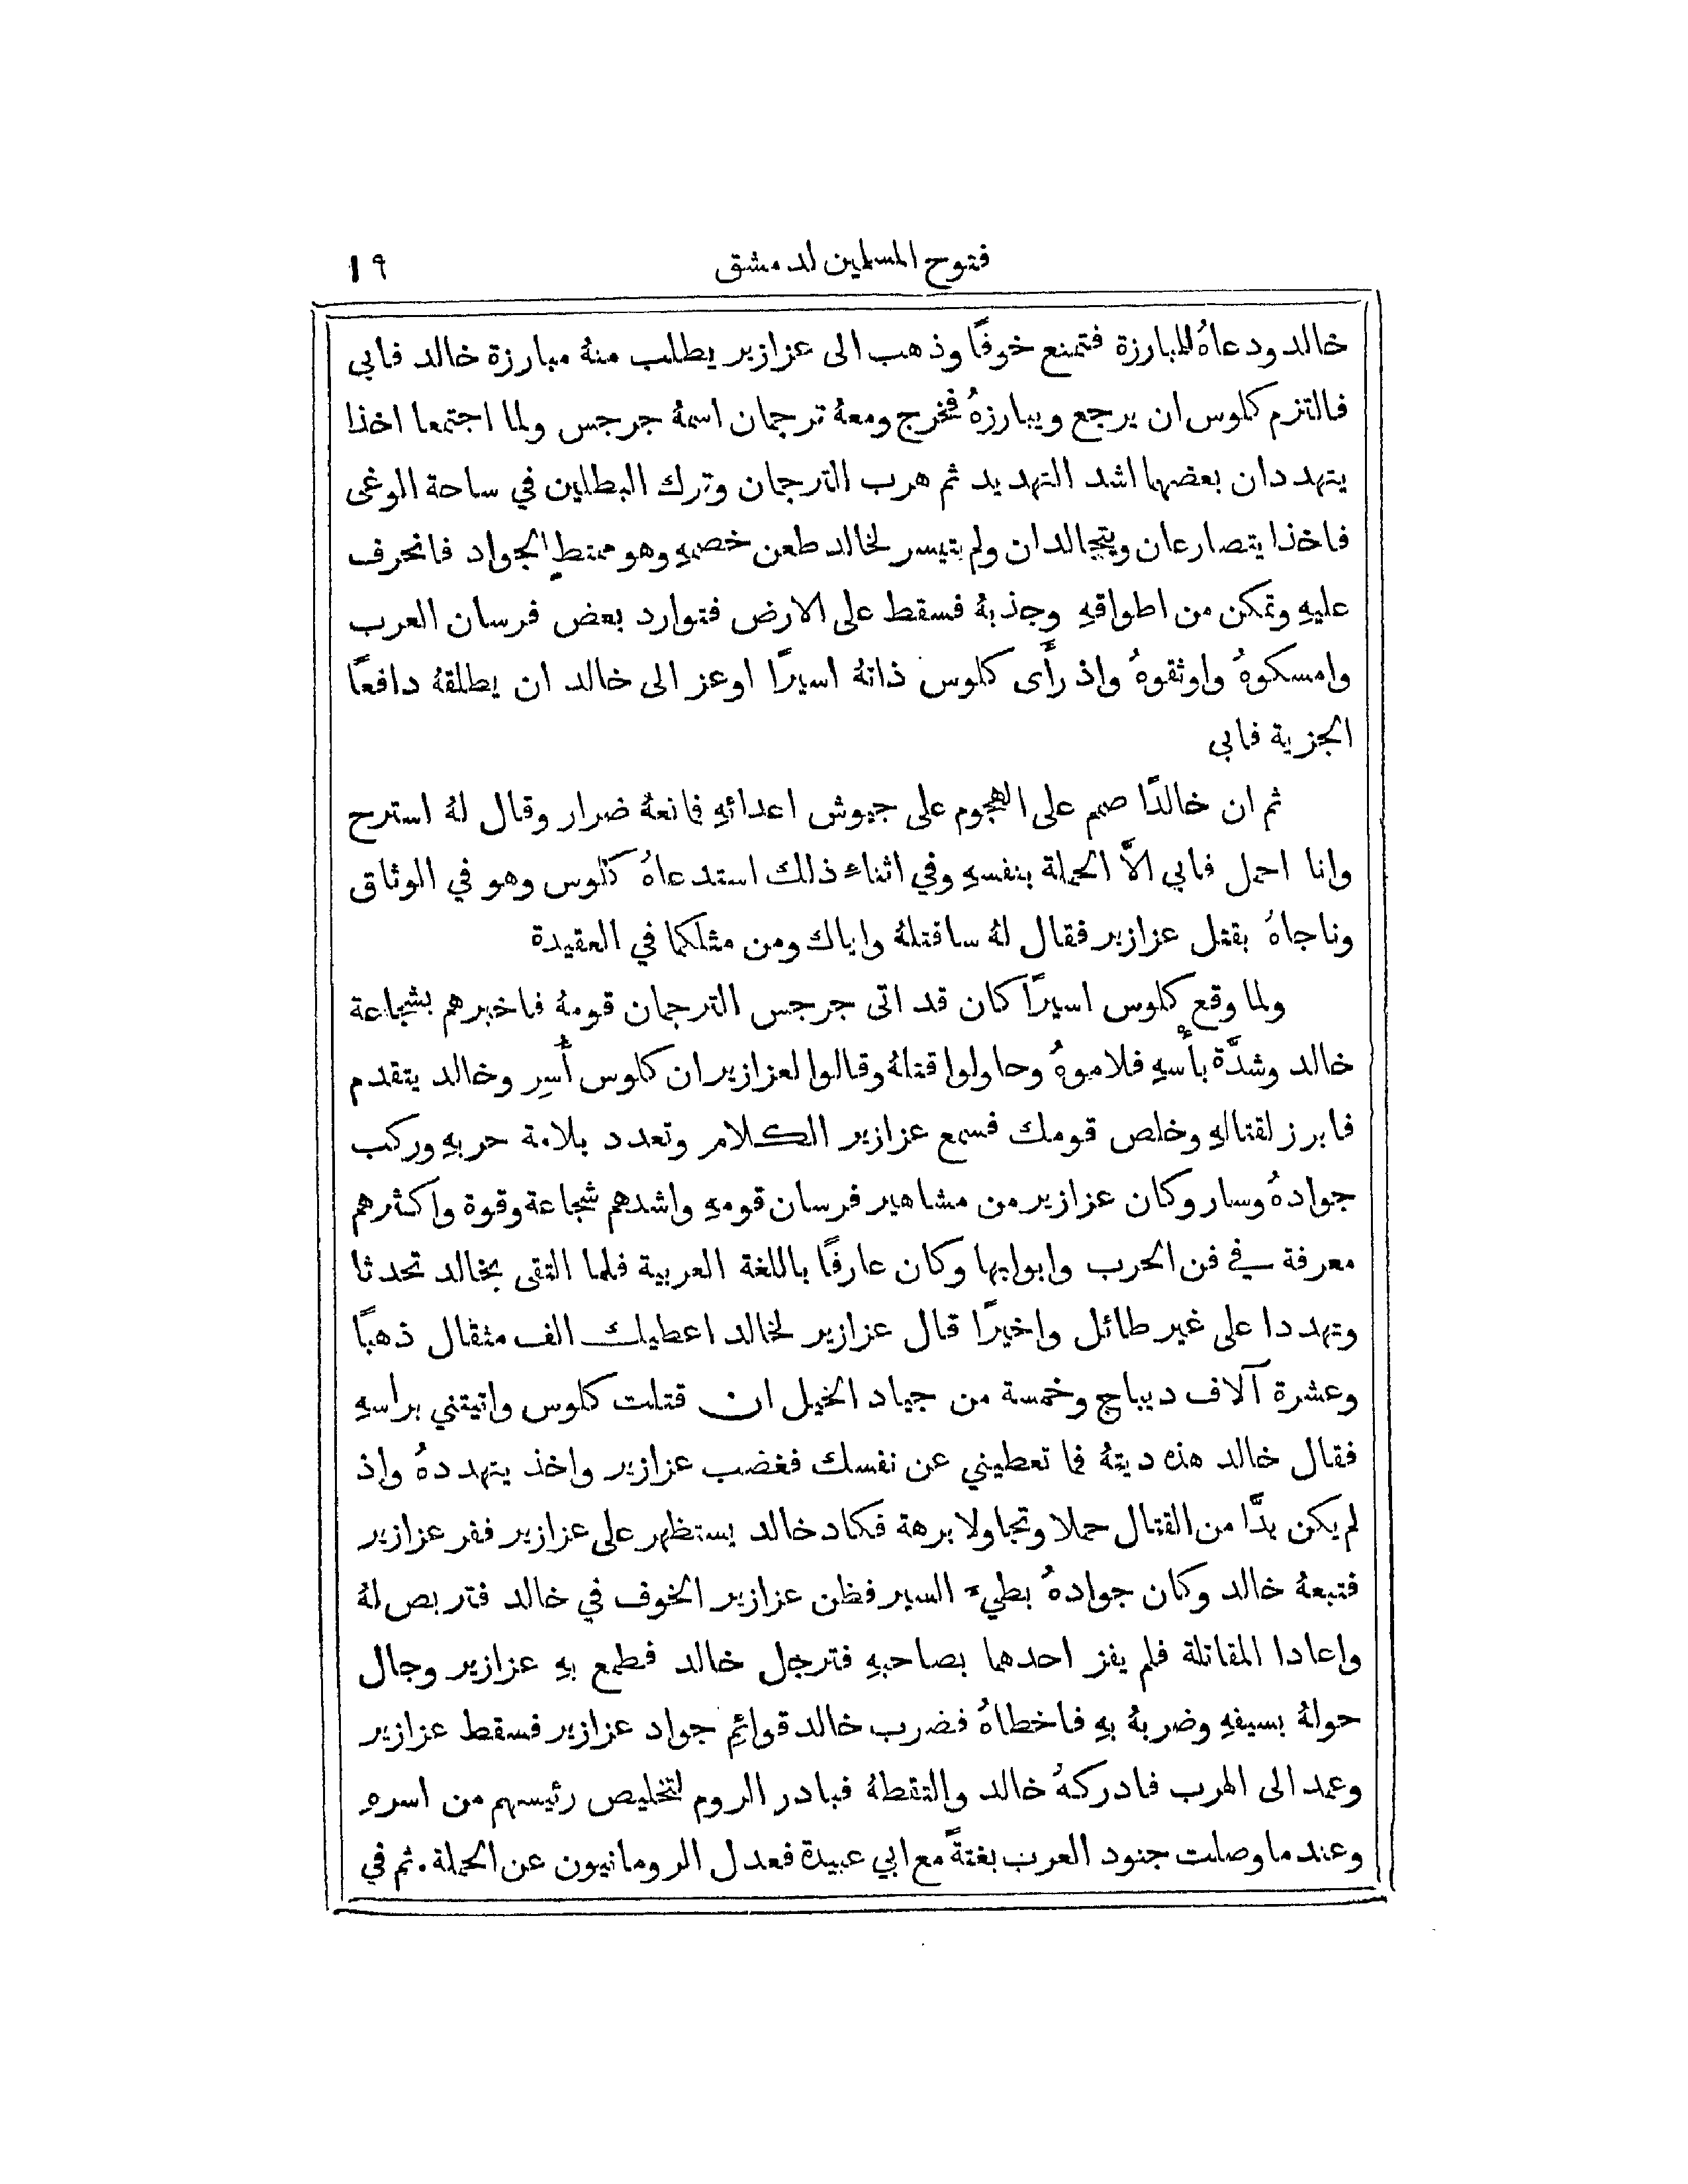 فتوح المسلمين لدمشق ١٩
خالد ودعاهُ للمبارزة فتمنع خوفًا وذهب الى عزازير يطلب منهُ مبارزة خالد فابى
فالتزم كلوس ان يرجع ويبارزهُ فخرج ومعهُ ترجمان اسمهُ جرجس ولما اجتمعا اخذا
يتهددان بعضهما اشد التهديد ثم هرب الترجمان وترك البطلين في ساحة الوغى
فاخذا يتصارعان ويتجالدان ولم يتيسر لخالد طعن خصمهِ وهو ممتطٍ الجواد فانحرف
عليهِ وتمكن من اطواقهِ وجذبهُ فسقط على الارض فتوارد بعض فرسان العرب
وامسكوهُ واوثقوهُ واذ رأَى كلوس ذاتهُ اسيرًا اوعز الى خالد ان يطلقهُ دافعًا
الجزية فابى
ثم ان خالدًا صمم على الهجوم على جيوش اعدائهِ فمانعهُ ضرار وقال لهُ استرح
وانا احمل فابى الاَّ الحملة بنفسهِ وفي اثناء ذلك استدعاهُ كلوس وهو في الوثاق
وناجاهُ بقتل عزازير فقال لهُ ساقتلهُ واياك ومن مثلكما في العقيدة
ولما وقع كلوس اسيرًا كان قد اتى جرجس الترجمان قومهُ فاخبرهم بشجاعة
خالد وشدَّة بأْسهِ فلاموهُ وحاولوا قتلهُ وقالوا لعزازير ان كلوس أُسِر وخالد يتقدم
فابرز لقتالهِ وخلص قومك فسمع عزازير الكلام وتعدد بلامة حربهِ وركب
جوادهُ وسار وكان عزازير من مشاهير فرسان قومهِ واشدهم شجاعة وقوة واكثرهم
معرفة في فن الحرب وابوابها وكان عارفًا باللغة العربية فلما التقى بخالد تحدثا
وتهددا على غير طائل واخيرًا قال عزازير لخالد اعطيك الف مثقال ذهبًا
وعشرة آلاف ديباج وخمسة من جياد الخيل ان قتلت كلوس واتيتني براسهِ
فقال خالد هذه ديتهُ فما تعطيني عن نفسك فغضب عزازير واخذ يتهددهُ واذ
لم يكن بدًّا من القتال حملا وتجاولا برهة فكاد خالد يستظهر على عزازير ففر عزازير
فتبعهُ خالد وكان جوادهُ بطيء السير فظن عزازير الخوف في خالد فتربص لهُ
واعادا المقاتلة فلم يفز احدهما بصاحبهِ فترجل خالد فطمع بهِ عزازير وجال
حولهُ بسيفهِ وضربهُ بهِ فاخطاهُ فضرب خالد قوائم جواد عزازير فسقط عزازير
وعمد الى الهرب فادركهُ خالد والتقطهُ فبادر الروم لتخليص رئيسهم من اسره
وعندما وصلت جنود العرب بغتةً مع ابي عبيدة فعدل الرومانيون عن الحملة . ثم في